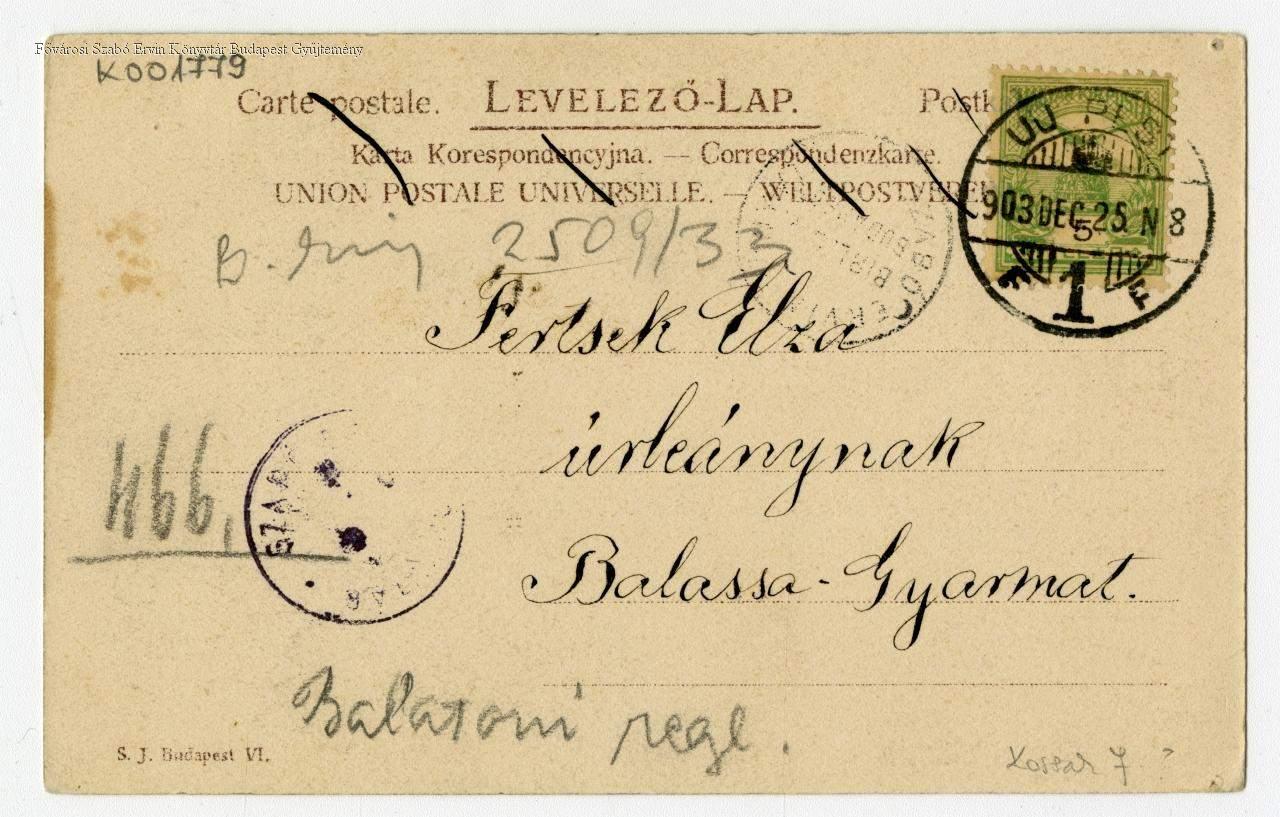 Fővárosi Szabó Ervin Könyvtár Budapest Gyűjtemény
K001779
Carte postale. LEVELEZŐ-LAP. Postk
Karta Korespondencyjna. — Correspondenzkarte.
UNION POSTALE UNIVERSELLE. — WELTPOSTVEREI
UJ PEST
903 DEC. 25. N 8
5
1
2509/33
Fertsek Elza
úrleánynak
466,
Balassa-Gyarmat.
Balatoni regl.
S. J. Budapest VI.